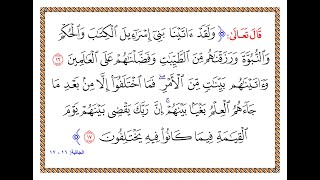 قَالَ تَعَالَى: ﴿ وَلَقَدْ ءَاتَيْنَا بَنِىٓ إِسْرَٰٓءِيلَ ٱلْكِتَٰبَ وَٱلْحُكْمَ
وَٱلنُّبُوَّةَ وَرَزَقْنَٰهُم مِّنَ ٱلطَّيِّبَٰتِ وَفَضَّلْنَٰهُمْ عَلَى ٱلْعَٰلَمِينَ ١٦
وَءَاتَيْنَٰهُم بَيِّنَٰتٍ مِّنَ ٱلْأَمْرِ ۖ فَمَا ٱخْتَلَفُوٓا۟ إِلَّا مِنۢ بَعْدِ مَا
جَآءَهُمُ ٱلْعِلْمُ بَغْيًۢا بَيْنَهُمْ ۚ إِنَّ رَبَّكَ يَقْضِى بَيْنَهُمْ يَوْمَ
ٱلْقِيَٰمَةِ فِيمَا كَانُوا۟ فِيهِ يَخْتَلِفُونَ ١٧ ﴾ الجاثية: ١٦ - ١٧